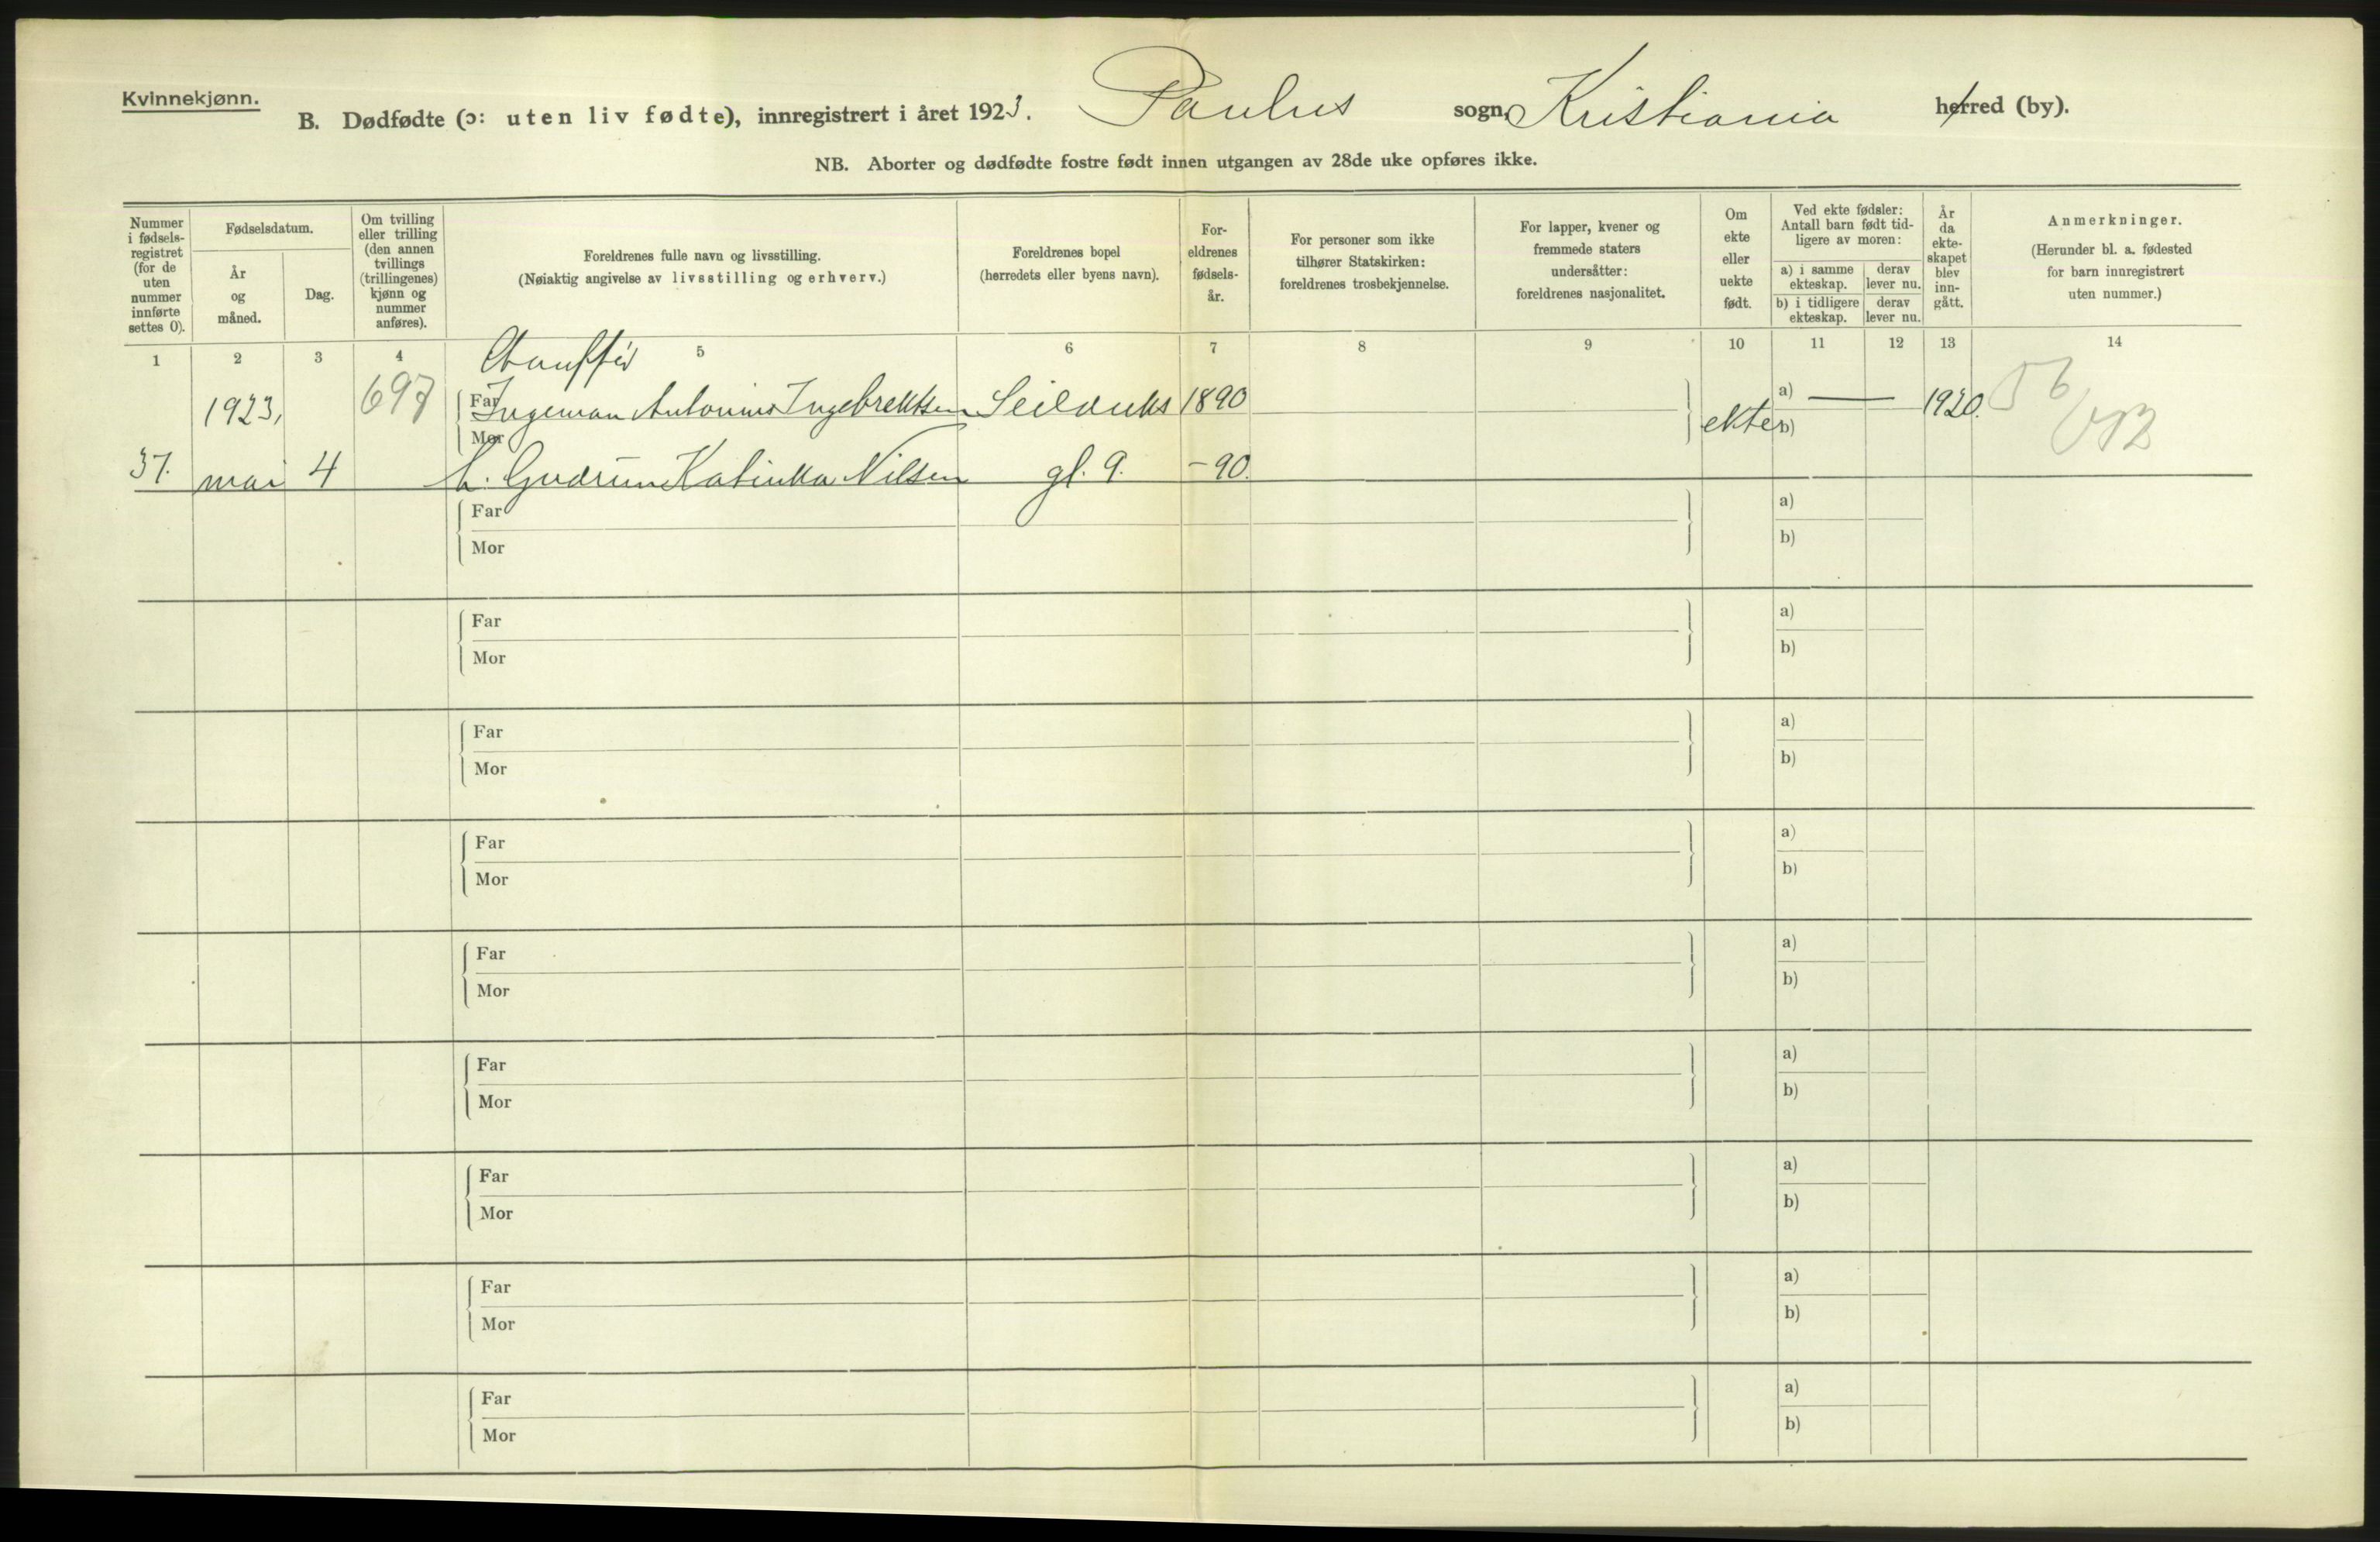 Kvinnekjønn.
B. Dødfødte (ɔ: uten liv fødte), innregistrert i året 1923. Paulus sogn, Kristiania herred (by).
NB. Aborter og dødfødte fostre født innen utgangen av 28de uke opføres ikke.
Nummer i fødsels-registret (for de uten nummer innførte settes 0).
Fødselsdatum.
År og måned.
Dag.
Om tvilling eller trilling (den annen tvillings (trillingenes) kjønn og nummer anføres).
Foreldrenes fulle navn og livsstilling.
(Nøiaktig angivelse av livsstilling og erhverv.)
Foreldrenes bopel
(herredets eller byens navn).
For-eldrenes fødsels-år.
For personer som ikke tilhører Statskirken: foreldrenes trosbekjennelse.
For lapper, kvener og fremmede staters undersåtter: foreldrenes nasjonalitet.
Om ekte eller uekte født.
Ved ekte fødsler: Antall barn født tid-ligere av moren:
a) i samme ekteskap.
derav lever nu.
b) i tidligere ekteskap.
derav lever nu.
År da ekte-skapet blev inn-gått.
Anmerkninger.
(Herunder bl. a. fødested for barn innregistrert uten nummer.)
1 2 3 4 5 6 7 8 9 10 11 12 13 14
1923, 697 Far Ingeman Antonius Ingebrektsen Seilduks 1890 ekte a) — 1920. 56
Mor b)
37. mai 4 h. Gudrun Katinka Nilsen gl. 9. -90.
Far a)
Mor b)
Far a)
Mor b)
Far a)
Mor b)
Far a)
Mor b)
Far a)
Mor b)
Far a)
Mor b)
Far a)
Mor b)
Far a)
Mor b)
Far a)
Mor b)